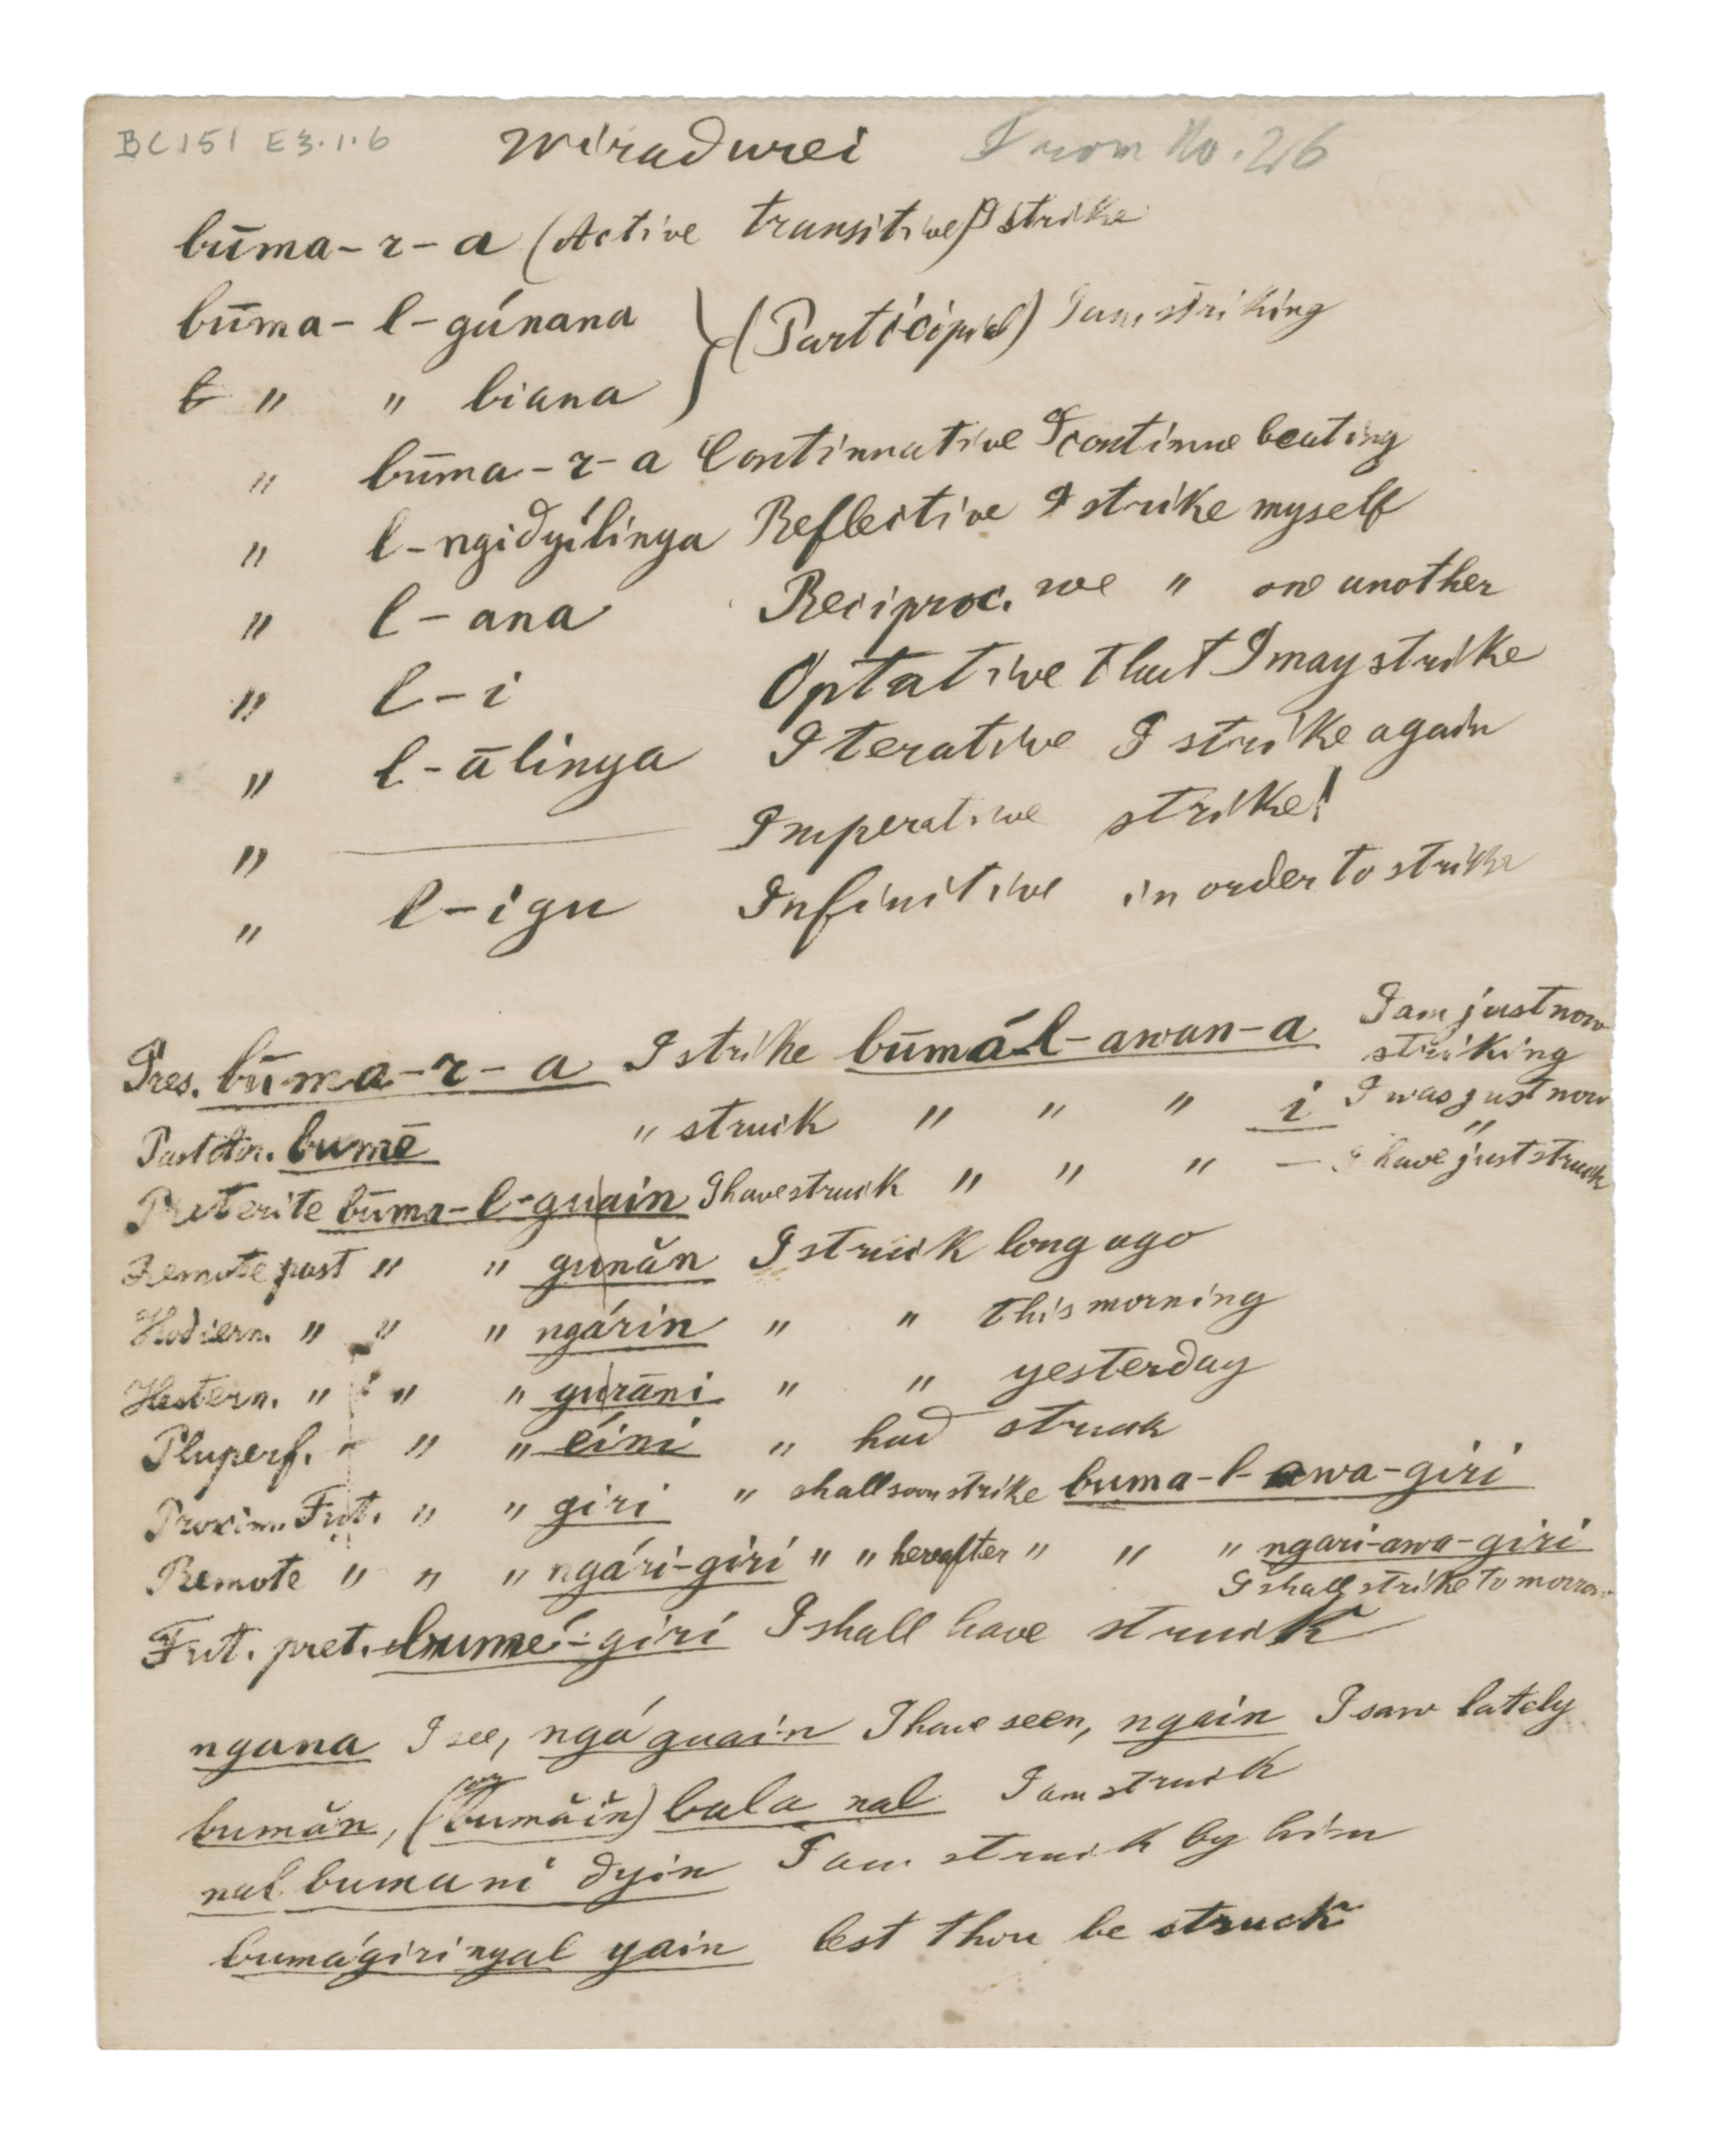 BC151 E3.1.6 Wiradurei From No. 26
būma-r-a (Active transitive) I strike
būma- l-gúnana } (Participial) I am striking
b " " biana
" būma-r-a Continuative I continue beating
" l-ngidyilinya Reflective I strike myself
" l-ana Reciproc. we " one another
" l-i Optative that I may strike
" l-ālinya Iterative I strike again
" —— Imperative strike!
" l-igu Infinitive in order to strike
Pres. būma-r-a I strike būmál-awan-a I am just now striking
Past Aor. bumē " struck " " " i I was just now "
Preterite būma-l-guain I have struck " " " — I have just struck
Remote past " " gunăn I struck long ago
Hodiern. " " " ngárin " " this morning
Hestern. " " " gurāni " " yesterday
Pluperf. " " " éini " had struck
Proxim. Fut. " " giri " shall soon strike buma-l-awa-giri
Remote " " " ngári-giri " " hereafter " " " ngari-awa-giri
I shall strike tomorrow
Fut. pret. bumé-giri I shall have struck
ngana I see, ngá guain I have seen, ngain I saw lately
bumăn, (or bumăĭn) bala nal I am struck
nal bumani dyin I am struck by him
bumágiri ngal yain lest thou be struck